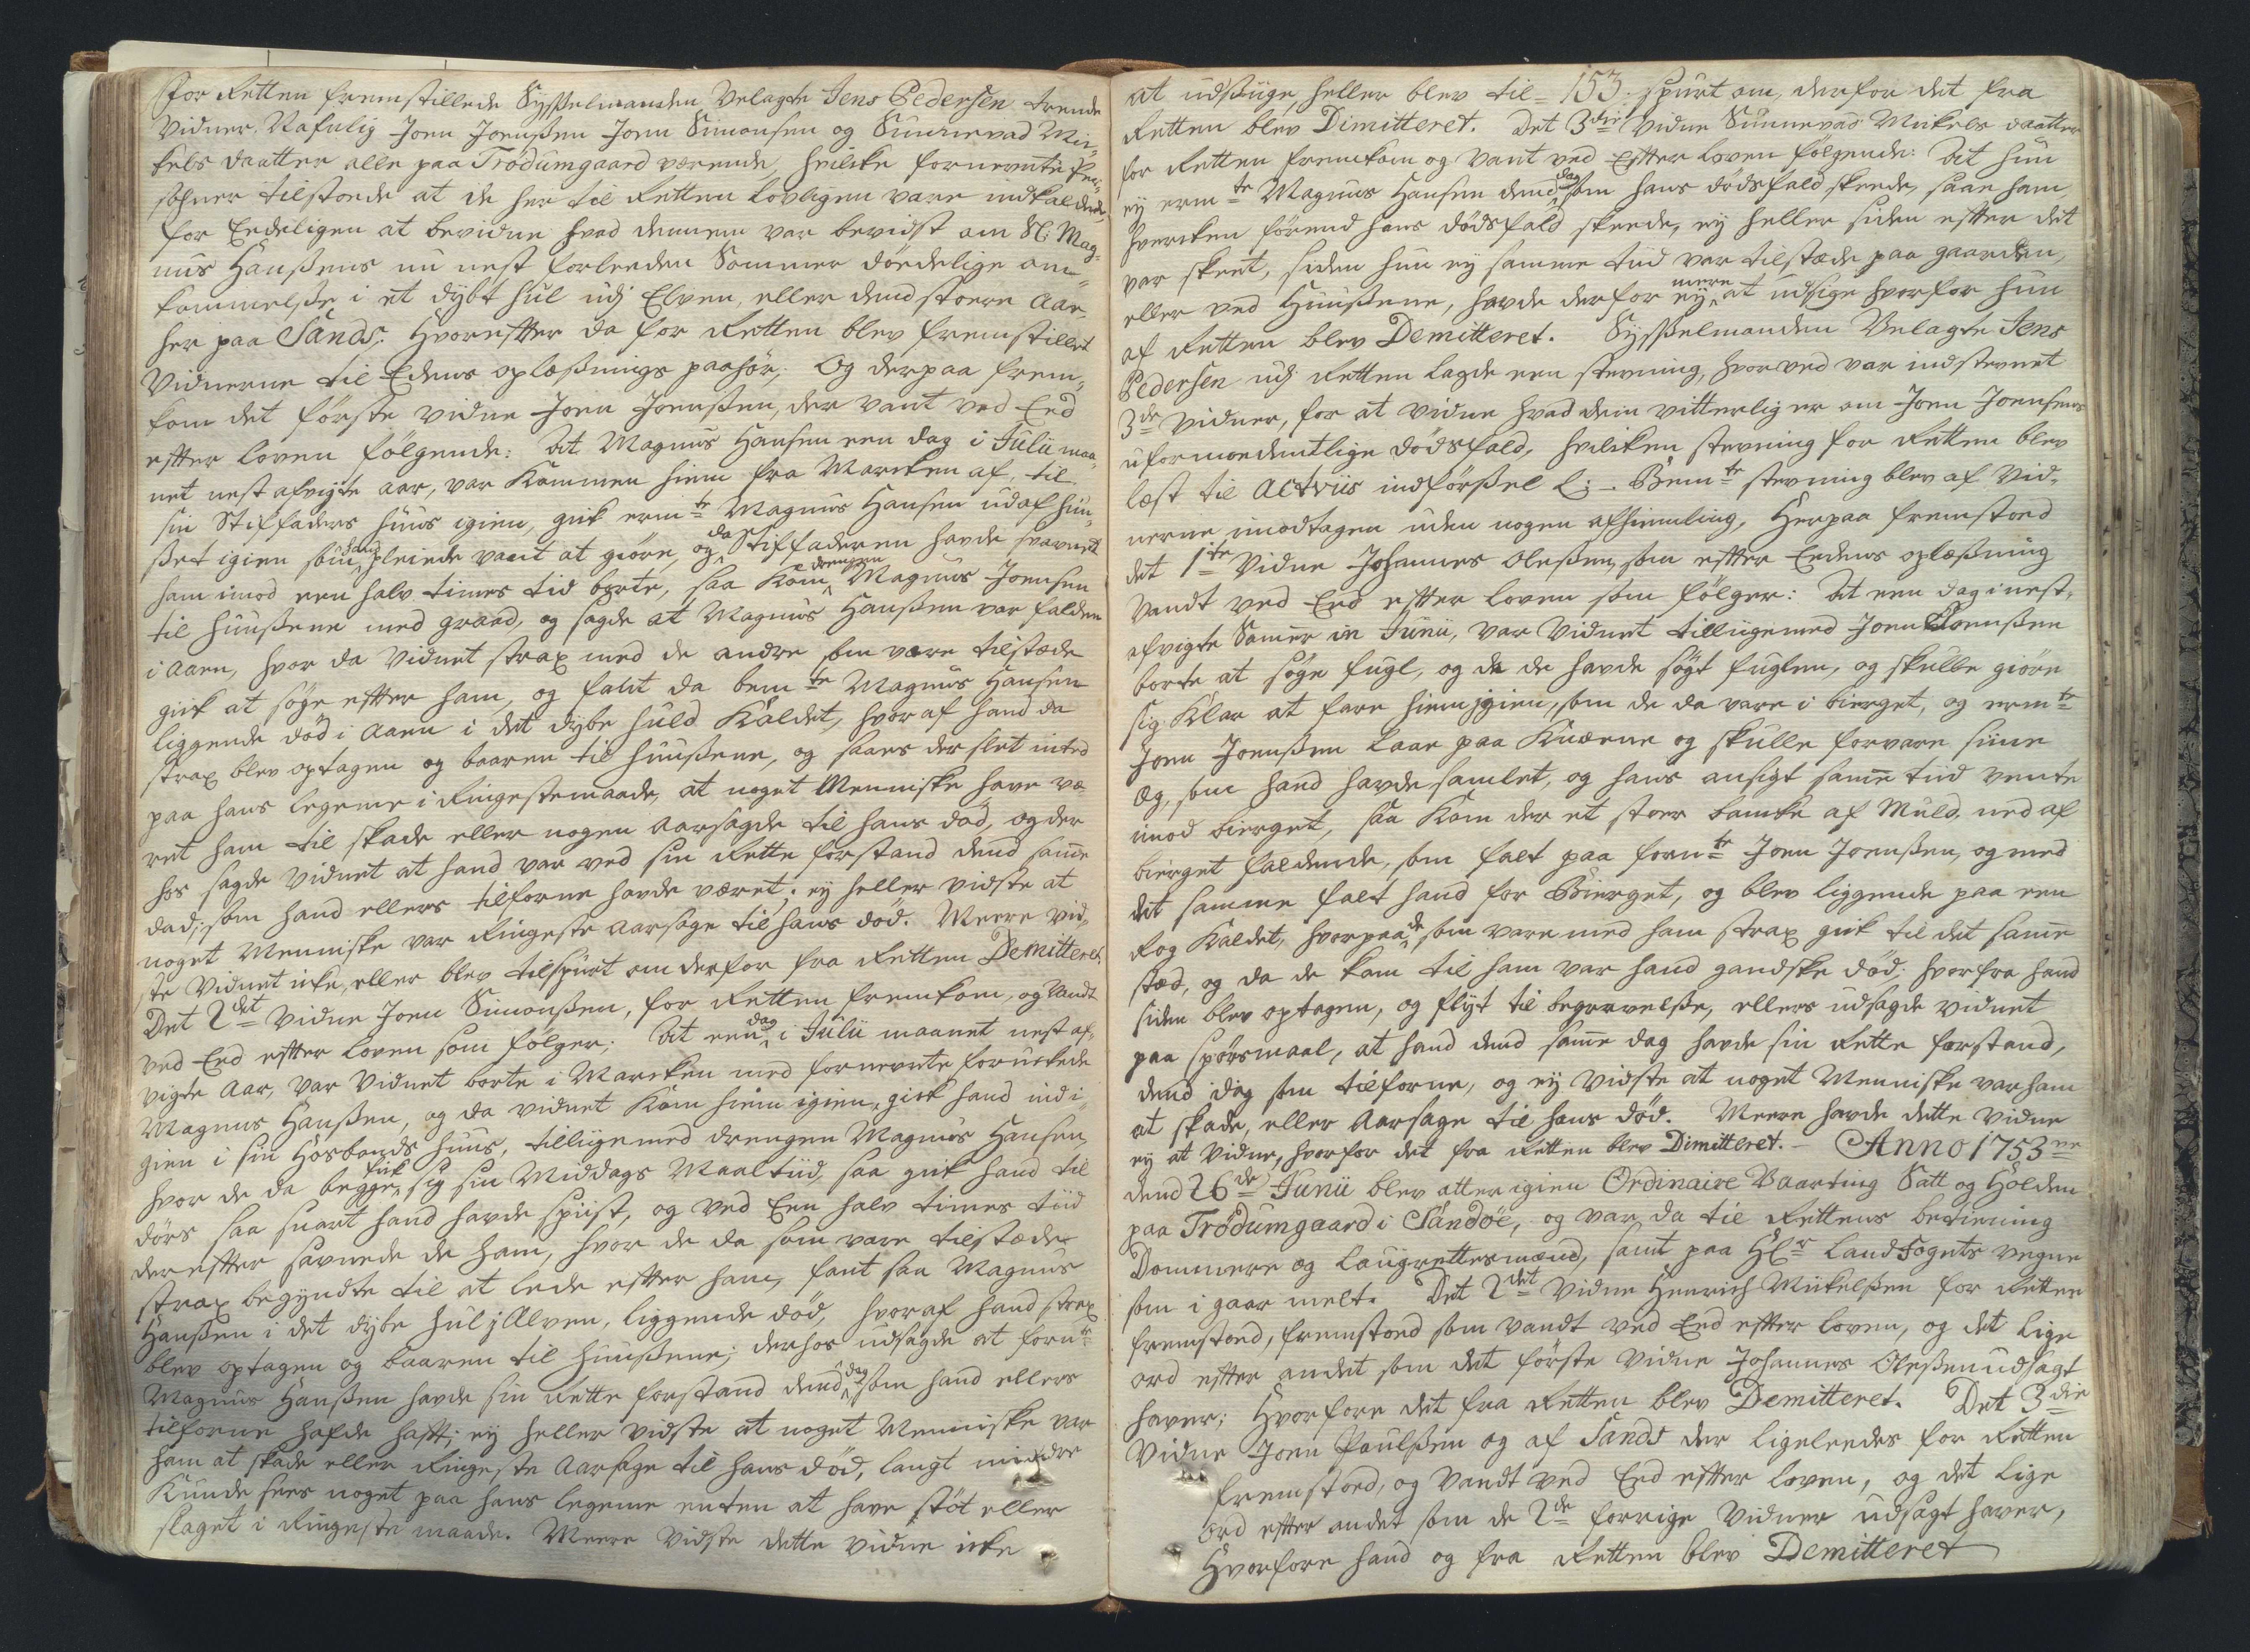 For Retten fremstillede Sysselmanden Velagte Jens Pedersen trende
Vidner, Nafnlig Joen Joenßen Joen Simonsen og Sunnevad Mi-
kels daatter alle paa Trödumgaard værende, hvilke fornevnte Per-
sohner tilstoede at de her til Retten lovligen vare indkaldede,
for Eedeligen at bevidne hvad dennem var bevidst om Sl: Mag-
nus Hanßens nu nest forleeden Sommer döedelige om-
kommelße i et dybt hul udj Elven, eller dend stoere Aae,
her paa Sands. Hvorefter da for Retten blev fremstillet
Vidnerne til Edens oplæßnings paahör; Og derpaa frem-
kom det förste vidne Joen Joenßen, der vant ved Eed
efter loven fölgende: At Magnus Hansen een dag i Julii maa-
net nest afvigte aar, var kommen hiem fra Marcken af, til
sin Stiffaders huus igien, gik erm:te Magnus Hansen ud af huu-
ßet igien som hand pleiede vant at giöre, og da Stiffaderen havde savnet
ham imod een halv times tid borte, saa kom drengen Magnus Joensen
til huußene med graad, og sagde at Magnus Hanßen var falden
i Aaen, hvor da vidnet strax med de andre som vare tilstæde
gik at söge efter ham, og fant da bem:te Magnus Hansen
liggende död i Aaen i det dybe huld kaldet, hvoraf hand da
strax blev optagen og baaren til huußene, og saaes der slet intet
paa hans legeme i Ringeste maade, at noget Menniske have væ-
ret ham til skade eller nogen Aarsagde til hans död, og der
hos sagde vidnet at hand var ved sin Rette forstand dend samme
dad, som hand ellers tilforne havde været; ej heller vidste at
noget Menniske var Ringeste Aarsage til hans död. Meere vid-
ste vidnet icke, eller blev tilspurt om derfor fra Retten Demitteret
Det 2det vidne Joen Simonßen, for Retten fremkom, og Vandt
ved Eed efter loven som fölger: At een dag i Julii maanet nest af-
vigte Aar, var vidnet borte i Marcken med fornevnte foruckede
Magnus Hanßen, og da vidnet kom hiem igien, gick hand ind i-
gien i sin Hosbonds huus, tilligemed drengen Magnus Hansen,
hvor de da begge fik sig sin Middags Maaltiid, saa gik hand til
dörs saa snart hand havde spiist, og ved Een halv times tiid
derefter savnede de ham, hvor de da som vare tilstæde
strax begyndte til at lede efter ham, fant saa Magnus
Hanßen i det dybe hul j Alven, liggende död, hvoraf hand strax
blev optagen og baaren til huußene; derhos udsagde at forn:te
Magnus Hanßen havde sin Rette forstand dend dag som hand ellers
tilforne hafde hafft; ej heller vidste at noget Menniske var
ham at skade eller Ringeste Aarsage til hans död, langt mindre
kunde sees noget paa hans legeme enten at have stöt eller
slaget i Ringeste maade. Meere vidste dette vidne icke
at udsiige, heller blev til- 153. spurt om, derfor det fra
Retten blev Dimitteret. Det 3die vidne Sunnevad Mickels daatter
for Retten fremkom og vant ved Efter loven fölgende: At hun
ej erm:te Magnus Hansen dend dag som hans dödsfald skeede, saae ham,
hvercken förend hans dödsfald skeede, ej heller siden efter det
var skeet, siden hun ej samme tiid var tilstæde paa gaarden,
eller ved Huußene, havde derfor ej mere at udsige hvorfor hun
af Retten blev Demitteret. Sysselmanden Velagte Jens
Pedersen udj Retten lagde een stevning, hvorved var indstevnet
3de vidner, for at vidne hvad dem vitterlig er om Joen Joensens
uformodentlige dödsfald, hvilcken stevning for Retten blev
læst til Actvis indförßel L: . Bem:te stevning blev af Vid-
nerne imodtagen uden nogen afhiemling, Herpaa fremstoed
det 1te vidne Johannes Oleßen, som efter Eedens oplæßning
vandt ved Eed efter loven som fölger: At een dag i nest-
afvigte Samer in Junii, var vidnet tilligemed Joen Joenßen
borte at söge fugl, og da de havde sögt fuglen, og skulle giöre
sig klar at fare hiem igien, som de da vare i bierget, og erm:te
Joen Joenßen laae paa Knæerne og skulle forvare siine
Æg, som hand havde samlet, og hans ansigt samme tiid vente
imod bierget, saa kom der et stoer bancke af Muld, ned af
bierget faldende, som falt paa forn:te Joen Joenßen, og med
det samme falt hand for Bierget, og blev liggende paa een
Rog kaldet, hvorpaa de som vare med ham strax gik til det samme
sted, og da de kom til ham var hand gandske död; hvorfra hand
siden blev optagen, og flyt til begravelße, ellers udsagde vidnet
paa spörsmaal, at hand dend samme dag havde sin Rette forstand,
dend idag som tilforne, og ej vidste at noget Menniske var ham
at skade, eller Aarsage til hans död. Meere havde dette vidne
ej at vidne, hvorfor det fra Retten blev Dimitteret. - Anno 1753
dend 26de Junii blev atter igien Ordinaire Vaarting Satt og Holden
paa Trödumgaard i Sandöe, og var da til Rettens betiening
Dommere og Laugrettesmænd, samt paa Hl:r Landfogets vegne
som i gaar melt. Det 2det vidne Henrich Mickelßen for Retten
fremstoed, fremstoed som vandt ved Eed efter loven, og det lige
ord efter andet som det förste vidne Johannes Oleßen udsagt
haver; Hvorfore det fra Retten blev Demitteret. Det 3die
Vidne Joen Poulßen og af Sands der ligeleedes for Retten
fremstoed, og vandt ved Eed efter loven, og det lige
ord efter andet som de 2de forrige vidner udsagt haver,
Hvorfore hand og fra Retten blev Demitteret